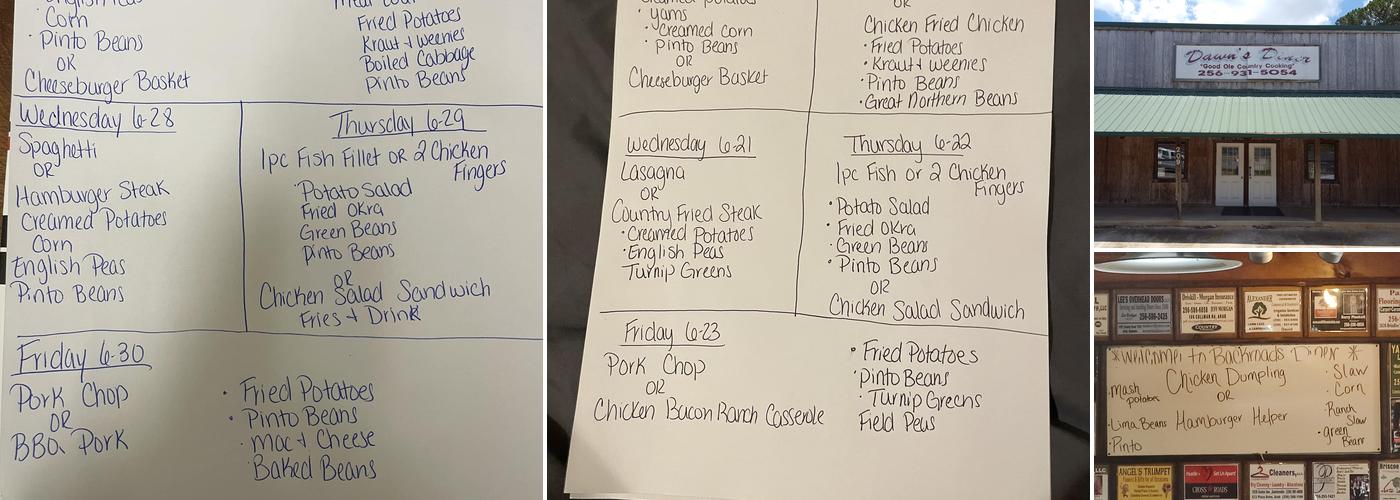 Corn
Pinto Beans
OR
Cheeseburger Basket
Fried Potatoes
Kraut + weenies
Boiled Cabbage
Pinto Beans
Wednesday 6-28
Spaghetti
OR
Hamburger Steak
Creamed Potatoes
Corn
English Peas
Pinto Beans
Thursday 6-29
1pc Fish Fillet OR 2 Chicken
Fingers
Potato Salad
Fried Okra
Green Beans
Pinto Beans
OR
Chicken Salad Sandwich
Fries + Drink
Friday 6-30
Pork Chop
OR
BBQ Pork
Fried Potatoes
Pinto Beans
Mac + Cheese
Baked Beans
Yams
Creamed corn
Pinto Beans
OR
Cheeseburger Basket
OR
Chicken Fried Chicken
Fried Potatoes
Kraut + weenies
Pinto Beans
Great Northern Beans
Wednesday 6-21
Lasagna
OR
Country Fried Steak
Creamed Potatoes
English Peas
Turnip Greens
Thursday 6-22
1pc Fish or 2 Chicken
Fingers
Potato Salad
Fried Okra
Green Beans
Pinto Beans
OR
Chicken Salad Sandwich
Friday 6-23
Pork Chop
OR
Chicken Bacon Ranch Casserole
Fried Potatoes
Pinto Beans
Turnip Greens
Field Peas
Dawn's Diner
"Good Ole Country Cooking"
256-931-5054
209
LEE'S OVERHEAD DOORS
256-586-2435
Driskill - Morgan Insurance
ALEXANDER
*Welcome to Backroads Diner*
Chicken Dumpling
OR
Hamburger Helper
Mash
potatoes
Lima Beans
Pinto
Slaw
Corn
Ranch
Slaw
green
Bean
ANGEL'S TRUMPET
CROSS ROADS
Cleaners